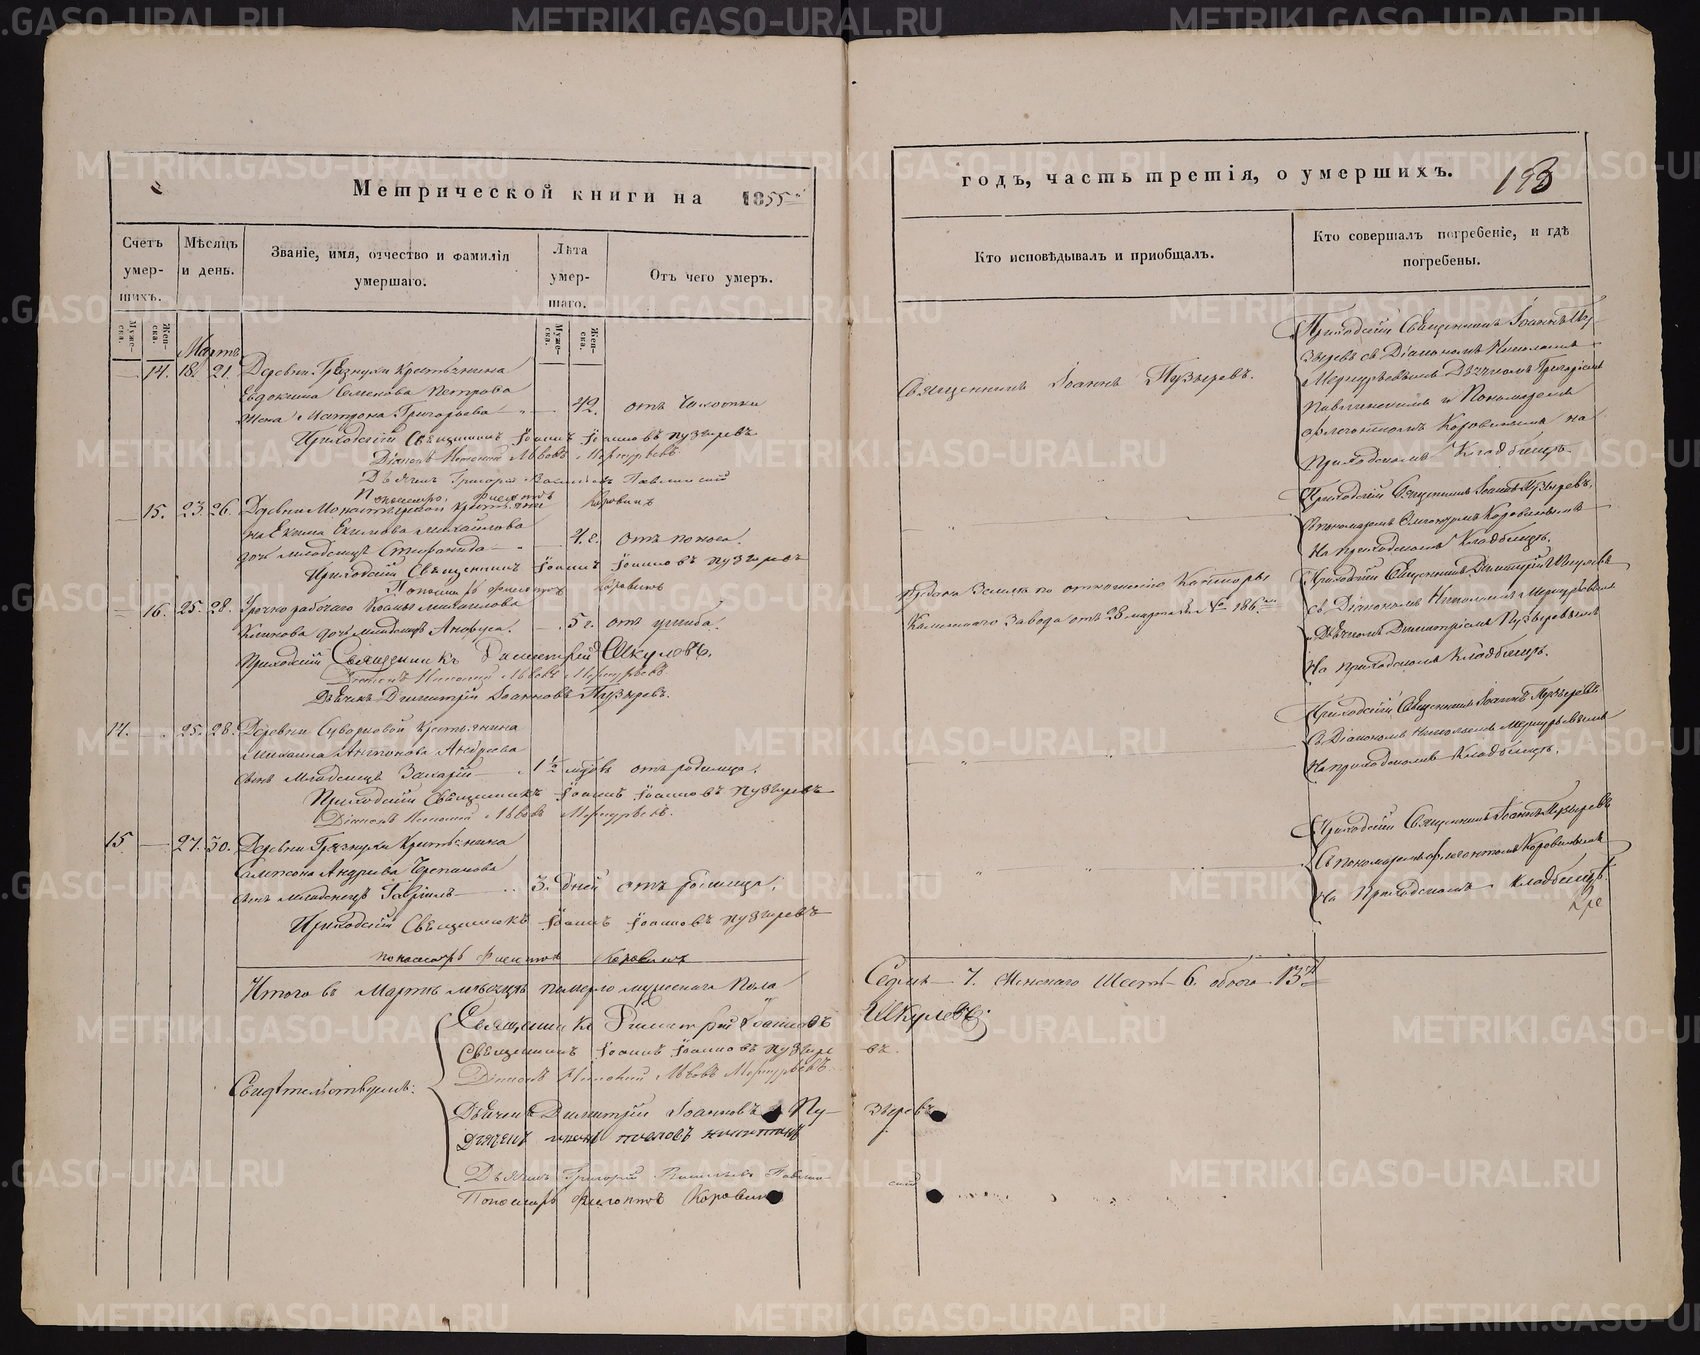 Метрической книги на 1855й
годъ, часть третія, о умершихъ.
193
Счетъ умер-шихъ.
Мѣсяцъ и день.
Званіе, имя, отчество и фамилія умершаго.
Лѣта умер-шаго.
Отъ чего умеръ.
Кто исповѣдывалъ и пріобщалъ.
Кто совершалъ погребеніе, и гдѣ погребены.
Муже-ска.
Жен-ска.
Муже-ска.
Жен-ска.
Мартъ
14. 18. 21. Деревни Грязнухи Крестьянина
Евдокима Семенова Петрова
жена Матрона Григорьева 42. отъ Чахотки
Приходскій Священникъ Іоаннъ Іоанновъ Пузыревъ
Діаконъ Николай Львовъ Меркурьевъ
Дьячекъ Григорій Васильевъ Павлинскій
Пономарь Флегонтъ Коровинъ
Священникъ Іоаннъ Пузыревъ.
Приходскій Священникъ Іоаннъ Пу-
зыревъ съ Діакономъ Николаемъ
Меркурьевымъ Дьячкомъ Григоріемъ
Павлинскимъ и Пономаремъ
Флегонтомъ Коровинымъ на
Приходскомъ Кладбищѣ.
15. 23. 26. Деревни Монастырской Крестьяни
на Екима Екимова Михайлова
дочь младенецъ Стефанида 4. г. отъ поноса.
Приходскій Священникъ Іоаннъ Іоанновъ Пузыревъ
Пономарь Флегонтъ Коровинъ
Приходскій Священникъ Іоаннъ Пузыревъ,
съ пономаремъ Флегонтомъ Коровинымъ
На приходскомъ Кладбищѣ.
16. 25. 28. Урочно рабочаго Козмы Михайлова
Климова дочь младенецъ 5 г. отъ ушиба.
Приходскій Священникъ Димитрій Шкулевъ.
Діаконъ Николай Львовъ Меркурьевъ
Дьячекъ Димитрій Іоанновъ Пузыревъ.
Предана Землѣ по отношенію Конторы
Каменскаго Завода отъ 28 марта за № 186.
Приходскій Священникъ Димитрій Шкулевъ
съ Діакономъ Николаемъ Меркурьевымъ
Дьячкомъ Димитріемъ Пузыревымъ
На приходскомъ Кладбищѣ.
14. 25. 28. Деревни Суворковой Крестьянина
Михаила Антонова Андреева
сынъ младенецъ Захарій 1 1/2 мцовъ отъ родимца.
Приходскій Священникъ Іоаннъ Іоанновъ Пузыревъ
Діаконъ Николай Львовъ Меркурьевъ.
Приходскій Священникъ Іоаннъ Пузыревъ
съ Діакономъ Николаемъ Меркурьевымъ
На приходскомъ Кладбищѣ.
15 27. 30. Деревни Грязнухи Крестьянина
Сампсона Андреева Черепанова
сынъ младенецъ Гавріилъ 3. дней отъ родимца.
Приходскій Священникъ Іоаннъ Іоанновъ Пузыревъ
пономарь Флегонтъ Коровинъ
Приходскій Священникъ Іоаннъ Пузыревъ
съ пономаремъ Флегонтомъ Коровинымъ
на Приходскомъ Кладбищѣ.
Итого въ Мартѣ мѣсяцѣ померло мужескаго Пола
Седмь 7. женскаго Шесть 6. обоего 13ть
Свидѣтельствуемъ:
Священникъ Димитрій Іоанновъ Шкулевъ.
Священникъ Іоаннъ Іоанновъ Пузыре въ.
Діаконъ Николай Львовъ Меркурьевъ.
Дьячекъ Димитрій Іоанновъ Пу- зыревъ
Дьячекъ
Дьячекъ Григорій Васильевъ Павлин скій
Пономарь Флегонтъ Коровинъ
METRIKI.GASO-URAL.RU